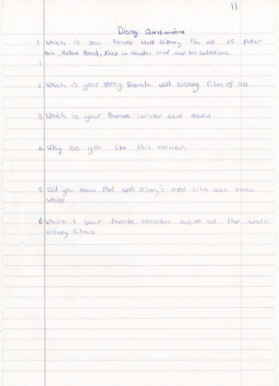 11
Disney Questionnaire
1. Which is your favourite Walt Disney film out of Peter
Pan, Robin Hood, Alice in wonder land and
1
2. Which is your favourite walt disney film of all
3. Which is your favourite cartoon
4. Why do you like this cartoon
5. Did you know that walt disney's first film was snow
white
6. Which is your favourite character out of all the walt
disney films